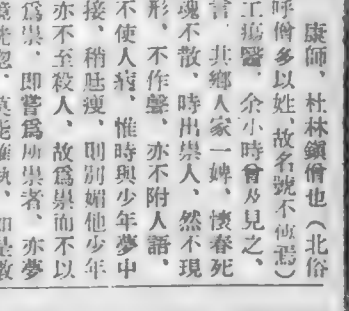 康師、杜林鎮僧也（北俗
呼僧多以姓、故名號不傳焉）
工瘍醫、余小時曾及見之、
言、其鄉人家一婢、懷春死
魂不散、時出祟人、然不現
形、不作聲、亦不附人語、
不使人病、惟時與少年夢中
接、稍尪瘦、則別媚他少年
亦不至殺人、故爲祟而不以
爲祟、即嘗爲所祟者、亦夢
境恍惚、莫能確執、如是數